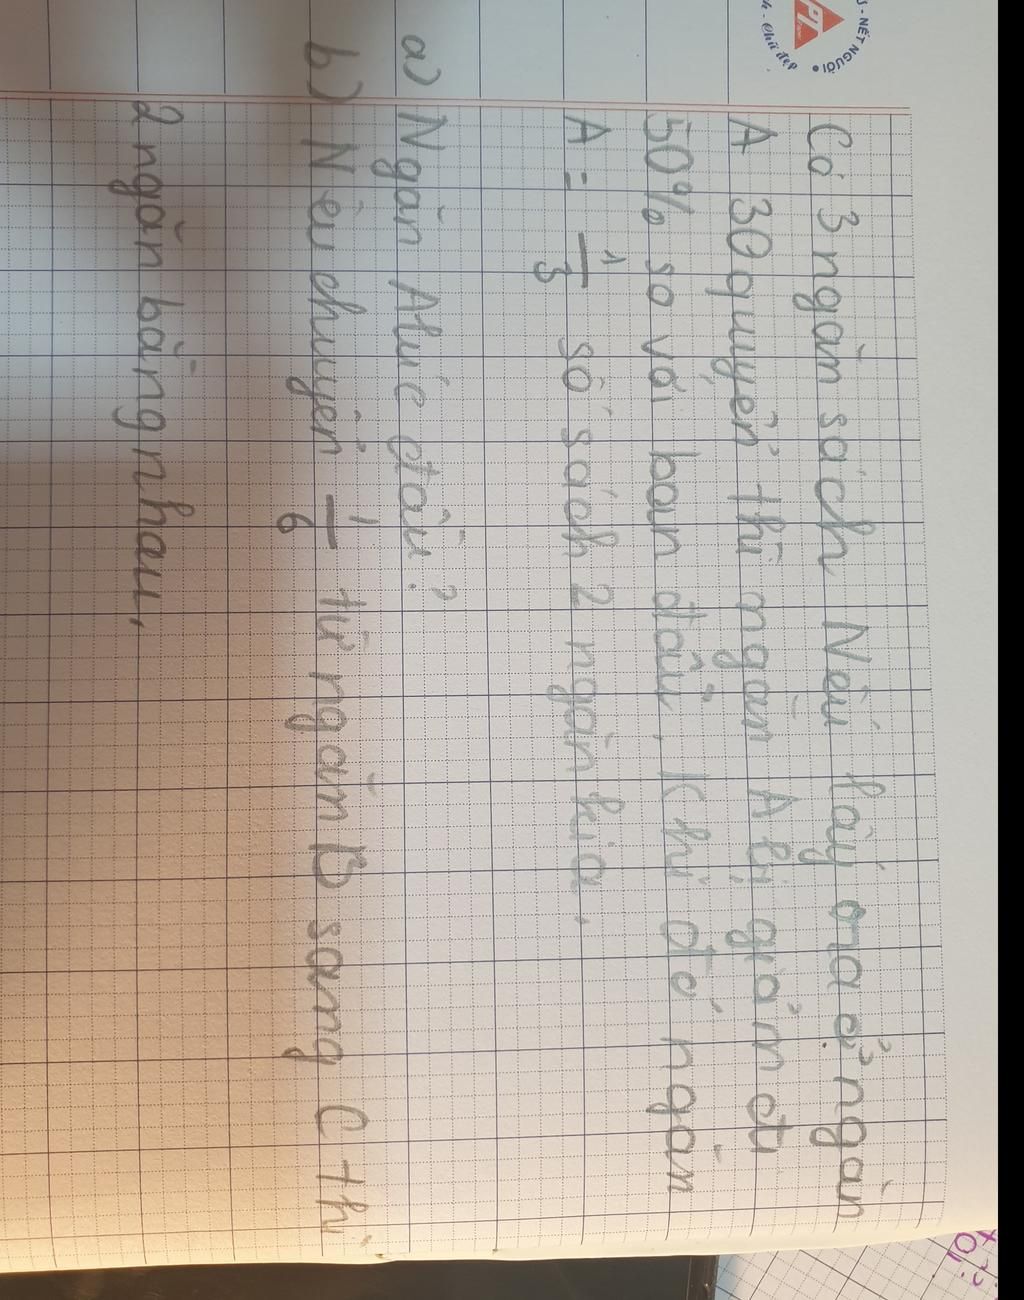 - NÉT NGƯỜI •
- Chữ đẹp
Có 3 ngăn sách Nếu lấy ra ở ngăn
A 30 quyển thì ngăn A bị giảm đi
50% so với ban đầu. Khi đó ngăn
A = 1/3 số sách 2 ngăn kia.
a) Ngăn A lúc đầu?
b) Nếu chuyển 1/6 từ ngăn B sang C thì
2 ngăn bằng nhau.